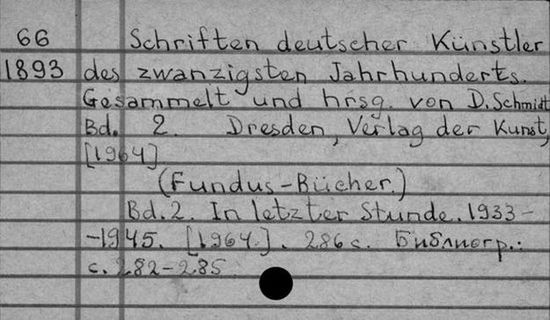 66 Schriften deutscher Künstler
1893 des zwanzigsten Jahrhunderts.
Gesammelt und hrsg. von D. Schmidt
Bd. 2. Dresden, Verlag der Kunst,
[1964]
(Fundus-Bücher.)
Bd. 2. In letzter Stunde. 1933-
-1945. [1964.]. 286 с. Библиогр.:
с. 282-285